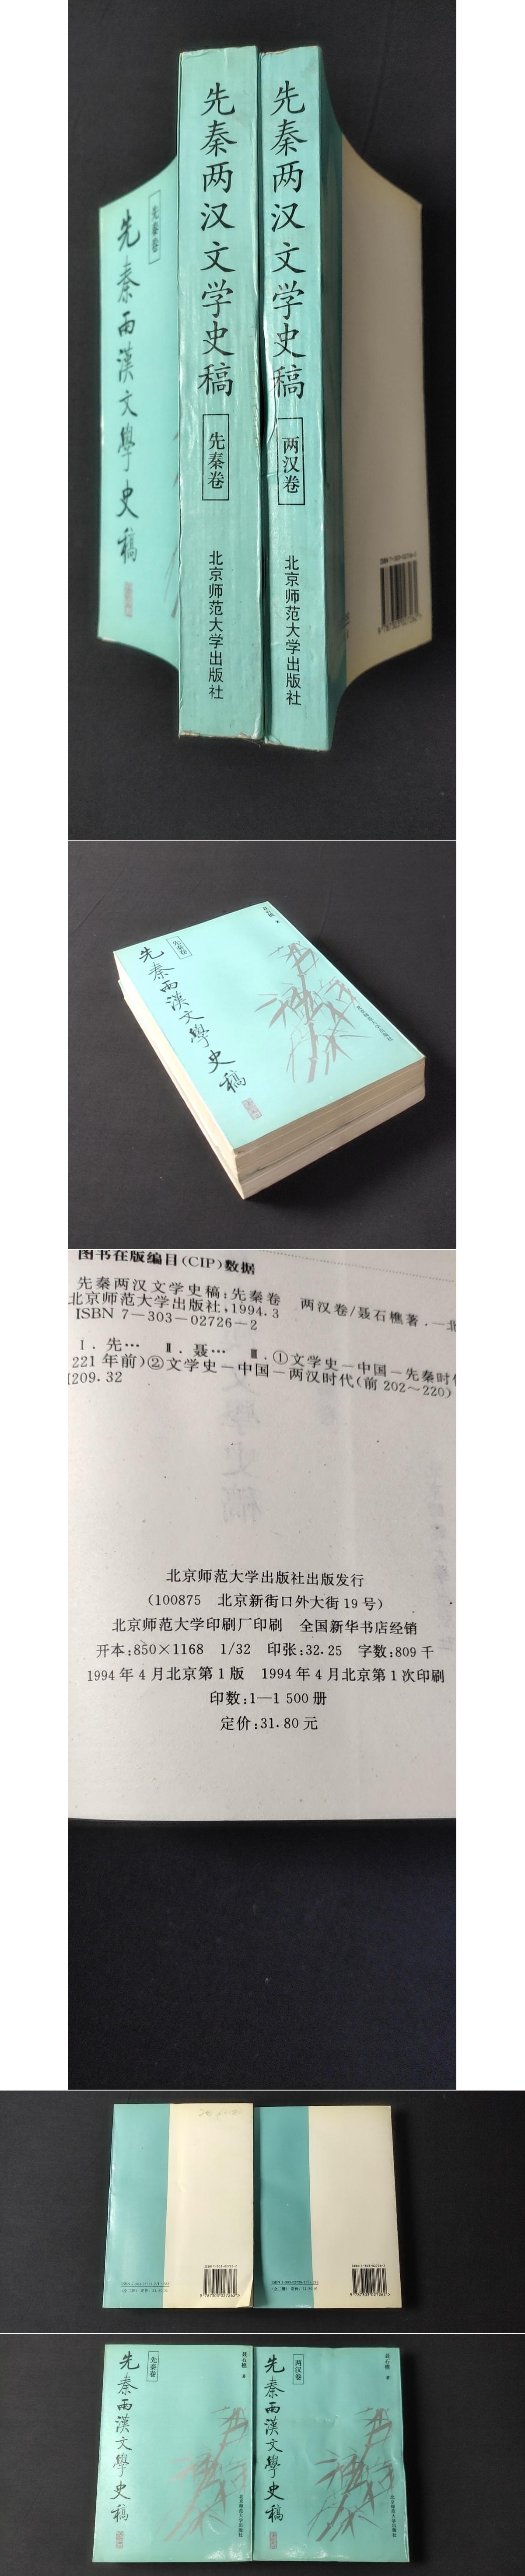 先秦卷
先秦两漢文學史稿
先秦两汉文学史稿
先秦卷
北京师范大学出版社
先秦两汉文学史稿
两汉卷
北京师范大学出版社
ISBN 7-303-02726-2
先秦卷
先秦两漢文學史稿
聂石樵 著
北京师范大学出版社
图书在版编目(CIP)数据
先秦两汉文学史稿:先秦卷 两汉卷/聂石樵著.—北
北京师范大学出版社,1994.3
ISBN 7-303-02726-2
Ⅰ.先… Ⅱ.聂… Ⅲ.①文学史-中国-先秦时代
221年前)②文学史-中国-两汉时代(前202~220)
I209.32
北京师范大学出版社出版发行
(100875 北京新街口外大街19号)
北京师范大学印刷厂印刷 全国新华书店经销
开本:850×1168 1/32 印张:32.25 字数:809千
1994年4月北京第1版 1994年4月北京第1次印刷
印数:1—1 500册
定价:31.80元
ISBN 7-303-02726-2
9787303027262
ISBN 7-303-02726-2
9787303027262
先秦卷
先秦两漢文學史稿
聂石樵 著
北京师范大学出版社
两汉卷
先秦两漢文學史稿
聂石樵 著
北京师范大学出版社